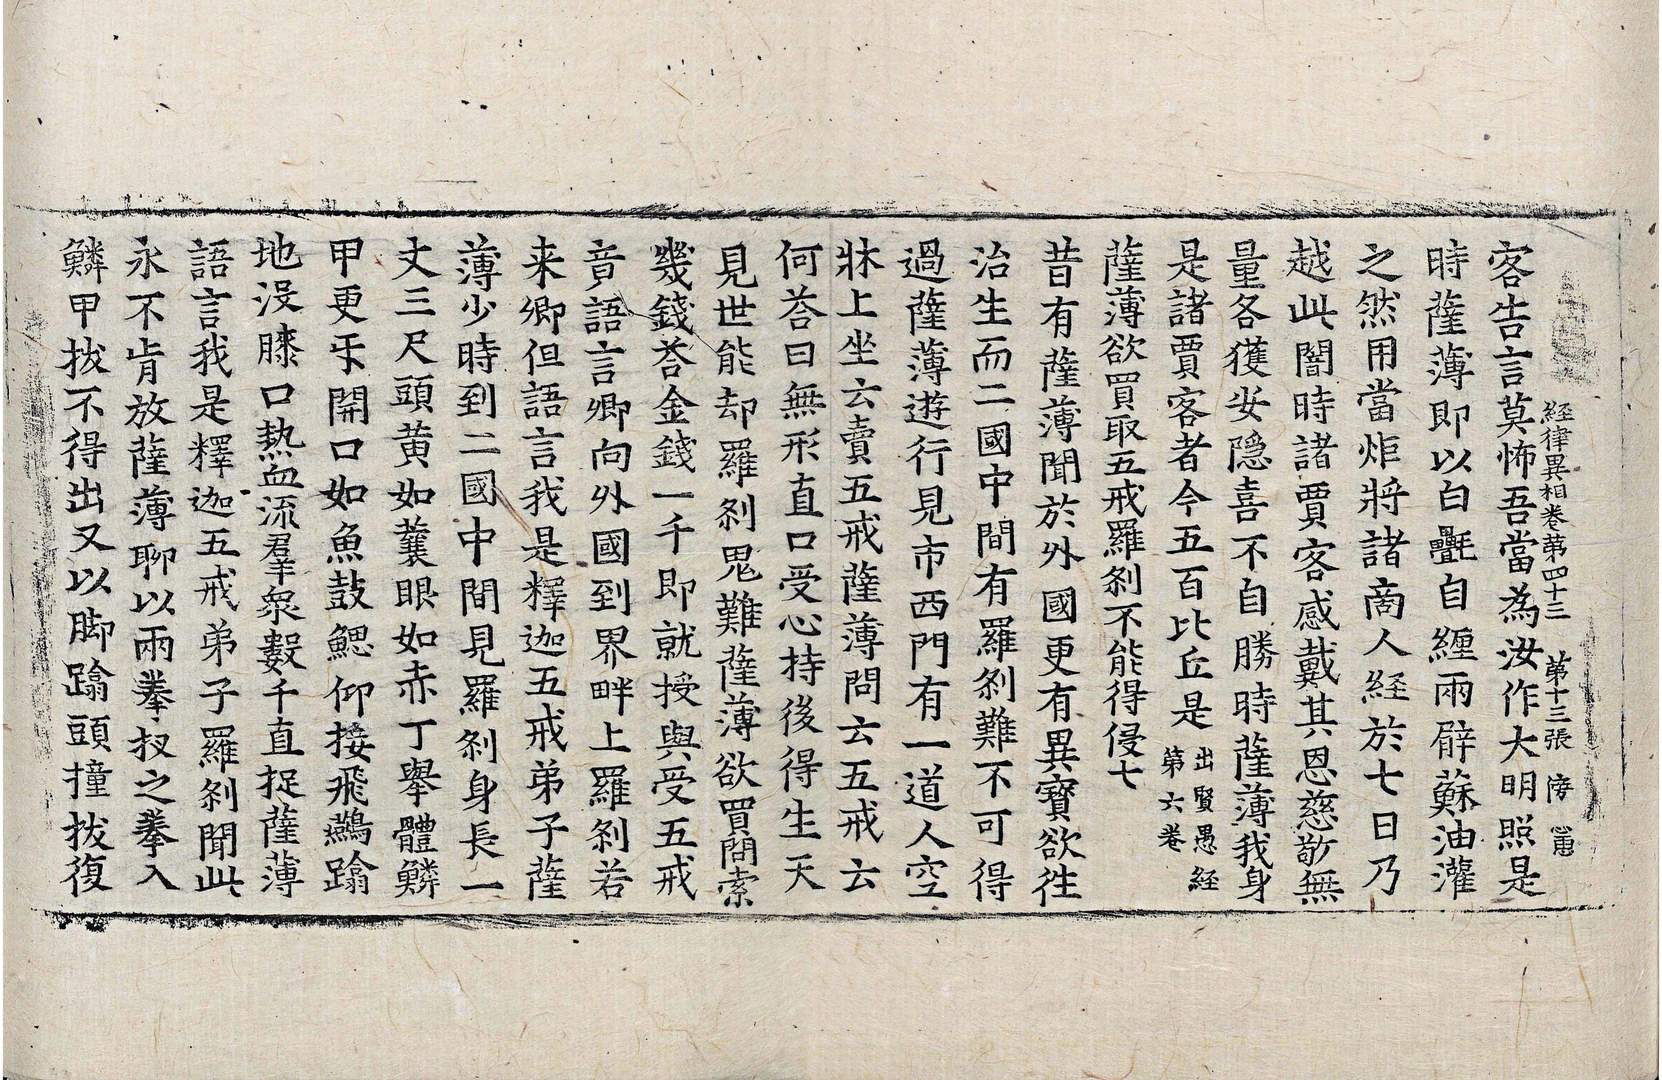 經律異相卷第四十三 第十三張 傍
客告言莫怖吾當為汝作大明照是
時薩薄即以白㲲自纏兩臂蘇油灌
之然用當炬將諸商人經於七日乃
越此闇時諸賈客感戴其恩慈敬無
量各獲安隱喜不自勝時薩薄我身
是諸賈客者今五百比丘是 出賢愚經
第六卷
薩薄欲買取五戒羅刹不能得侵七
昔有薩薄聞於外國更有異寳欲往
治生而二國中間有羅刹難不可得
過薩薄遊行見市西門有一道人空
牀上坐云賣五戒薩薄問云五戒云
何荅曰無形直口受心持後得生天
見世能却羅刹鬼難薩薄欲買問索
幾錢荅金錢一千即就授與受五戒
音語言卿向外國到界畔上羅刹若
来卿但語言我是釋迦五戒弟子薩
薄少時到二國中間見羅刹身長一
丈三尺頭黄如蘘眼如赤丁舉體鱗
甲更乐開口如魚鼓鰓仰接飛鷰蹹
地没膝口熱血流羣衆數千直捉薩薄
語言我是釋迦五戒弟子羅刹聞此
永不肯放薩薄聊以兩拳扠之拳入
鱗甲拔不得出又以脚蹹頭撞拔復